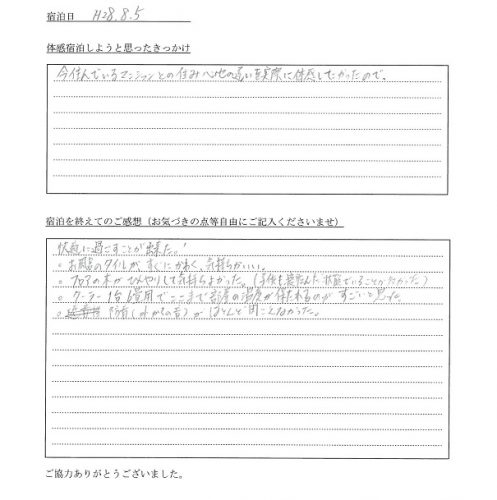 宿泊日 H28.8.5
体感宿泊しようと思ったきっかけ
今住んでいるマンションとの住み心地の違いを実際に体感したかったので。
宿泊を終えてのご感想（お気づきの点等自由にご記入くださいませ）
快適に過ごすことが出来た。
。お風呂のタイルが、すぐにかわく、気持ちがいい。
。フロアの木がひんやりして気持ちよかった。（子供も寝ころんだ状態でいることが多かった）
。クーラー1台運用でここまで部屋の温度が保たれるのがすごいと思った。
。防音（外からの音）がほとんど聞こえなかった。
ご協力ありがとうございました。